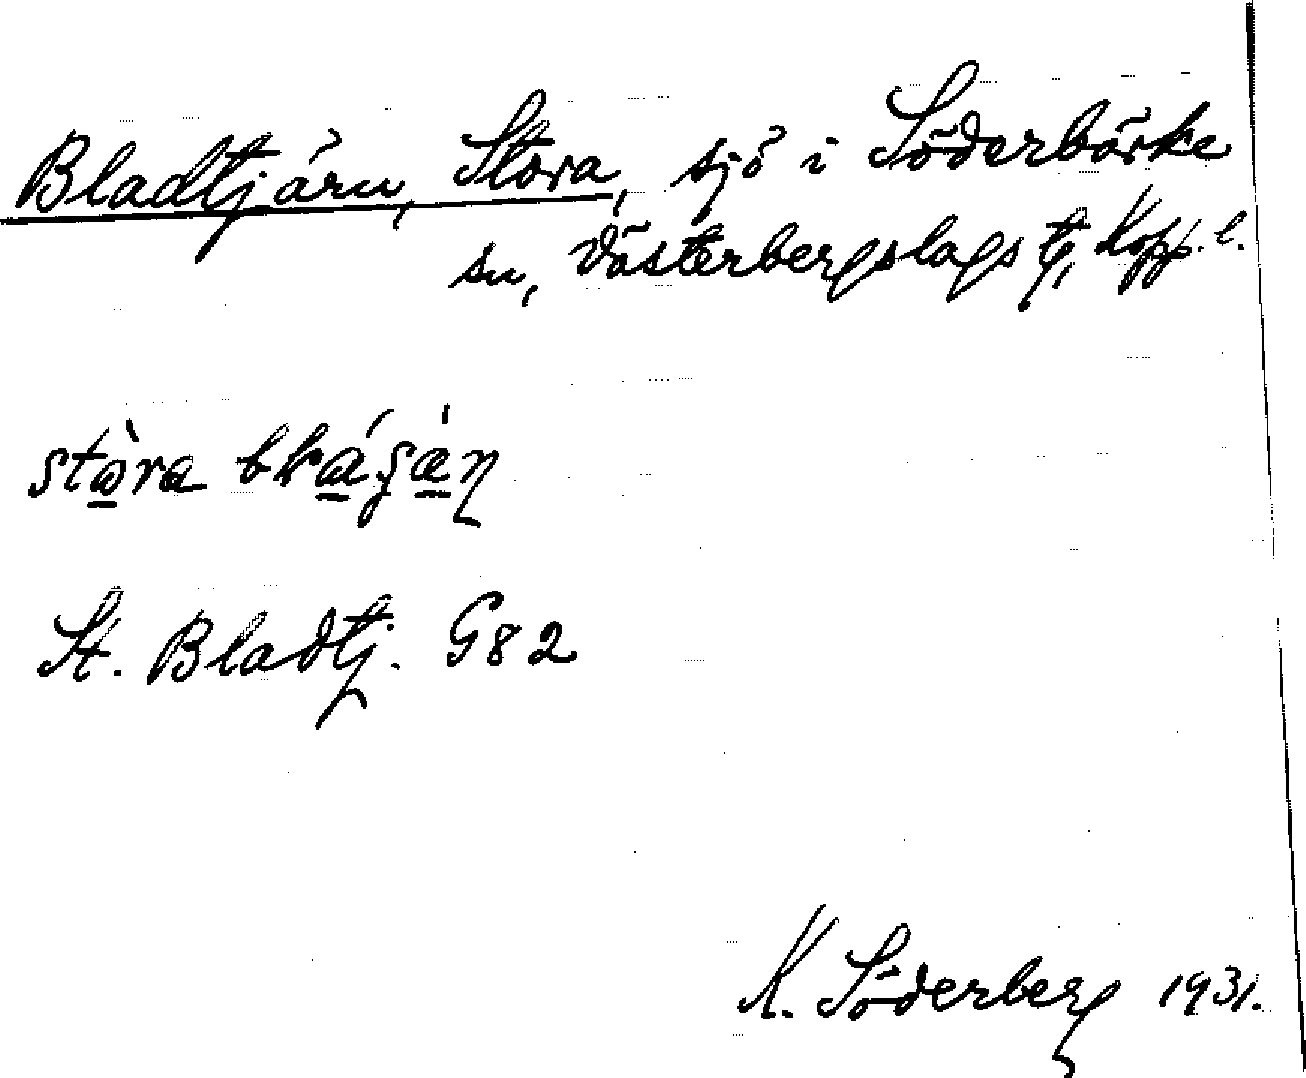 Bladtjärn, Stora, sjö i Söderbärke
sn, Västerbergslags tg, Kopp. l.
St. Bladtj. G82
K. Söderberg 1931.